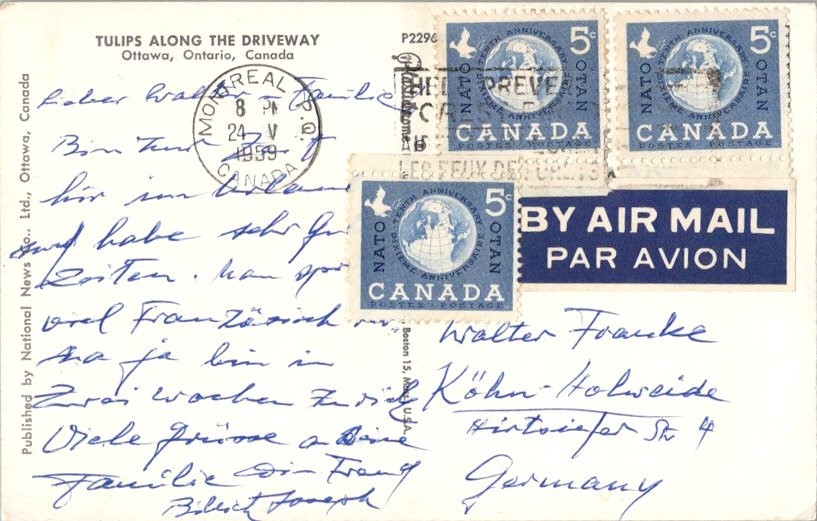 TULIPS ALONG THE DRIVEWAY
Ottawa, Ontario, Canada
P229
Published by National News Co., Ltd., Ottawa, Canada
MONTREAL P.Q.
8 PM
24 V
1959
CANADA
HELP PREVENT
LES FEUX DE FORETS
NATO OTAN 5c
TENTH ANNIVERSARY
DIXIEME ANNIVERSAIRE
CANADA
POSTES POSTAGE
NATO OTAN 5c
TENTH ANNIVERSARY
DIXIEME ANNIVERSAIRE
CANADA
POSTES POSTAGE
NATO OTAN 5c
TENTH ANNIVERSARY
DIXIEME ANNIVERSAIRE
CANADA
POSTES POSTAGE
BY AIR MAIL
PAR AVION
Boston 15, Mass., U.S.A.
Lieber Walter Familie
Bin zur Zeit
hir im
und habe sehr
Zeiten. Man
viel Französisch
na ja bin in
Zwei Wochen zurück
Viele Grüsse an Deine
Familie Dein Freund
Joseph
Walter Francke
Köhn-Holweide
Str 4
Germany